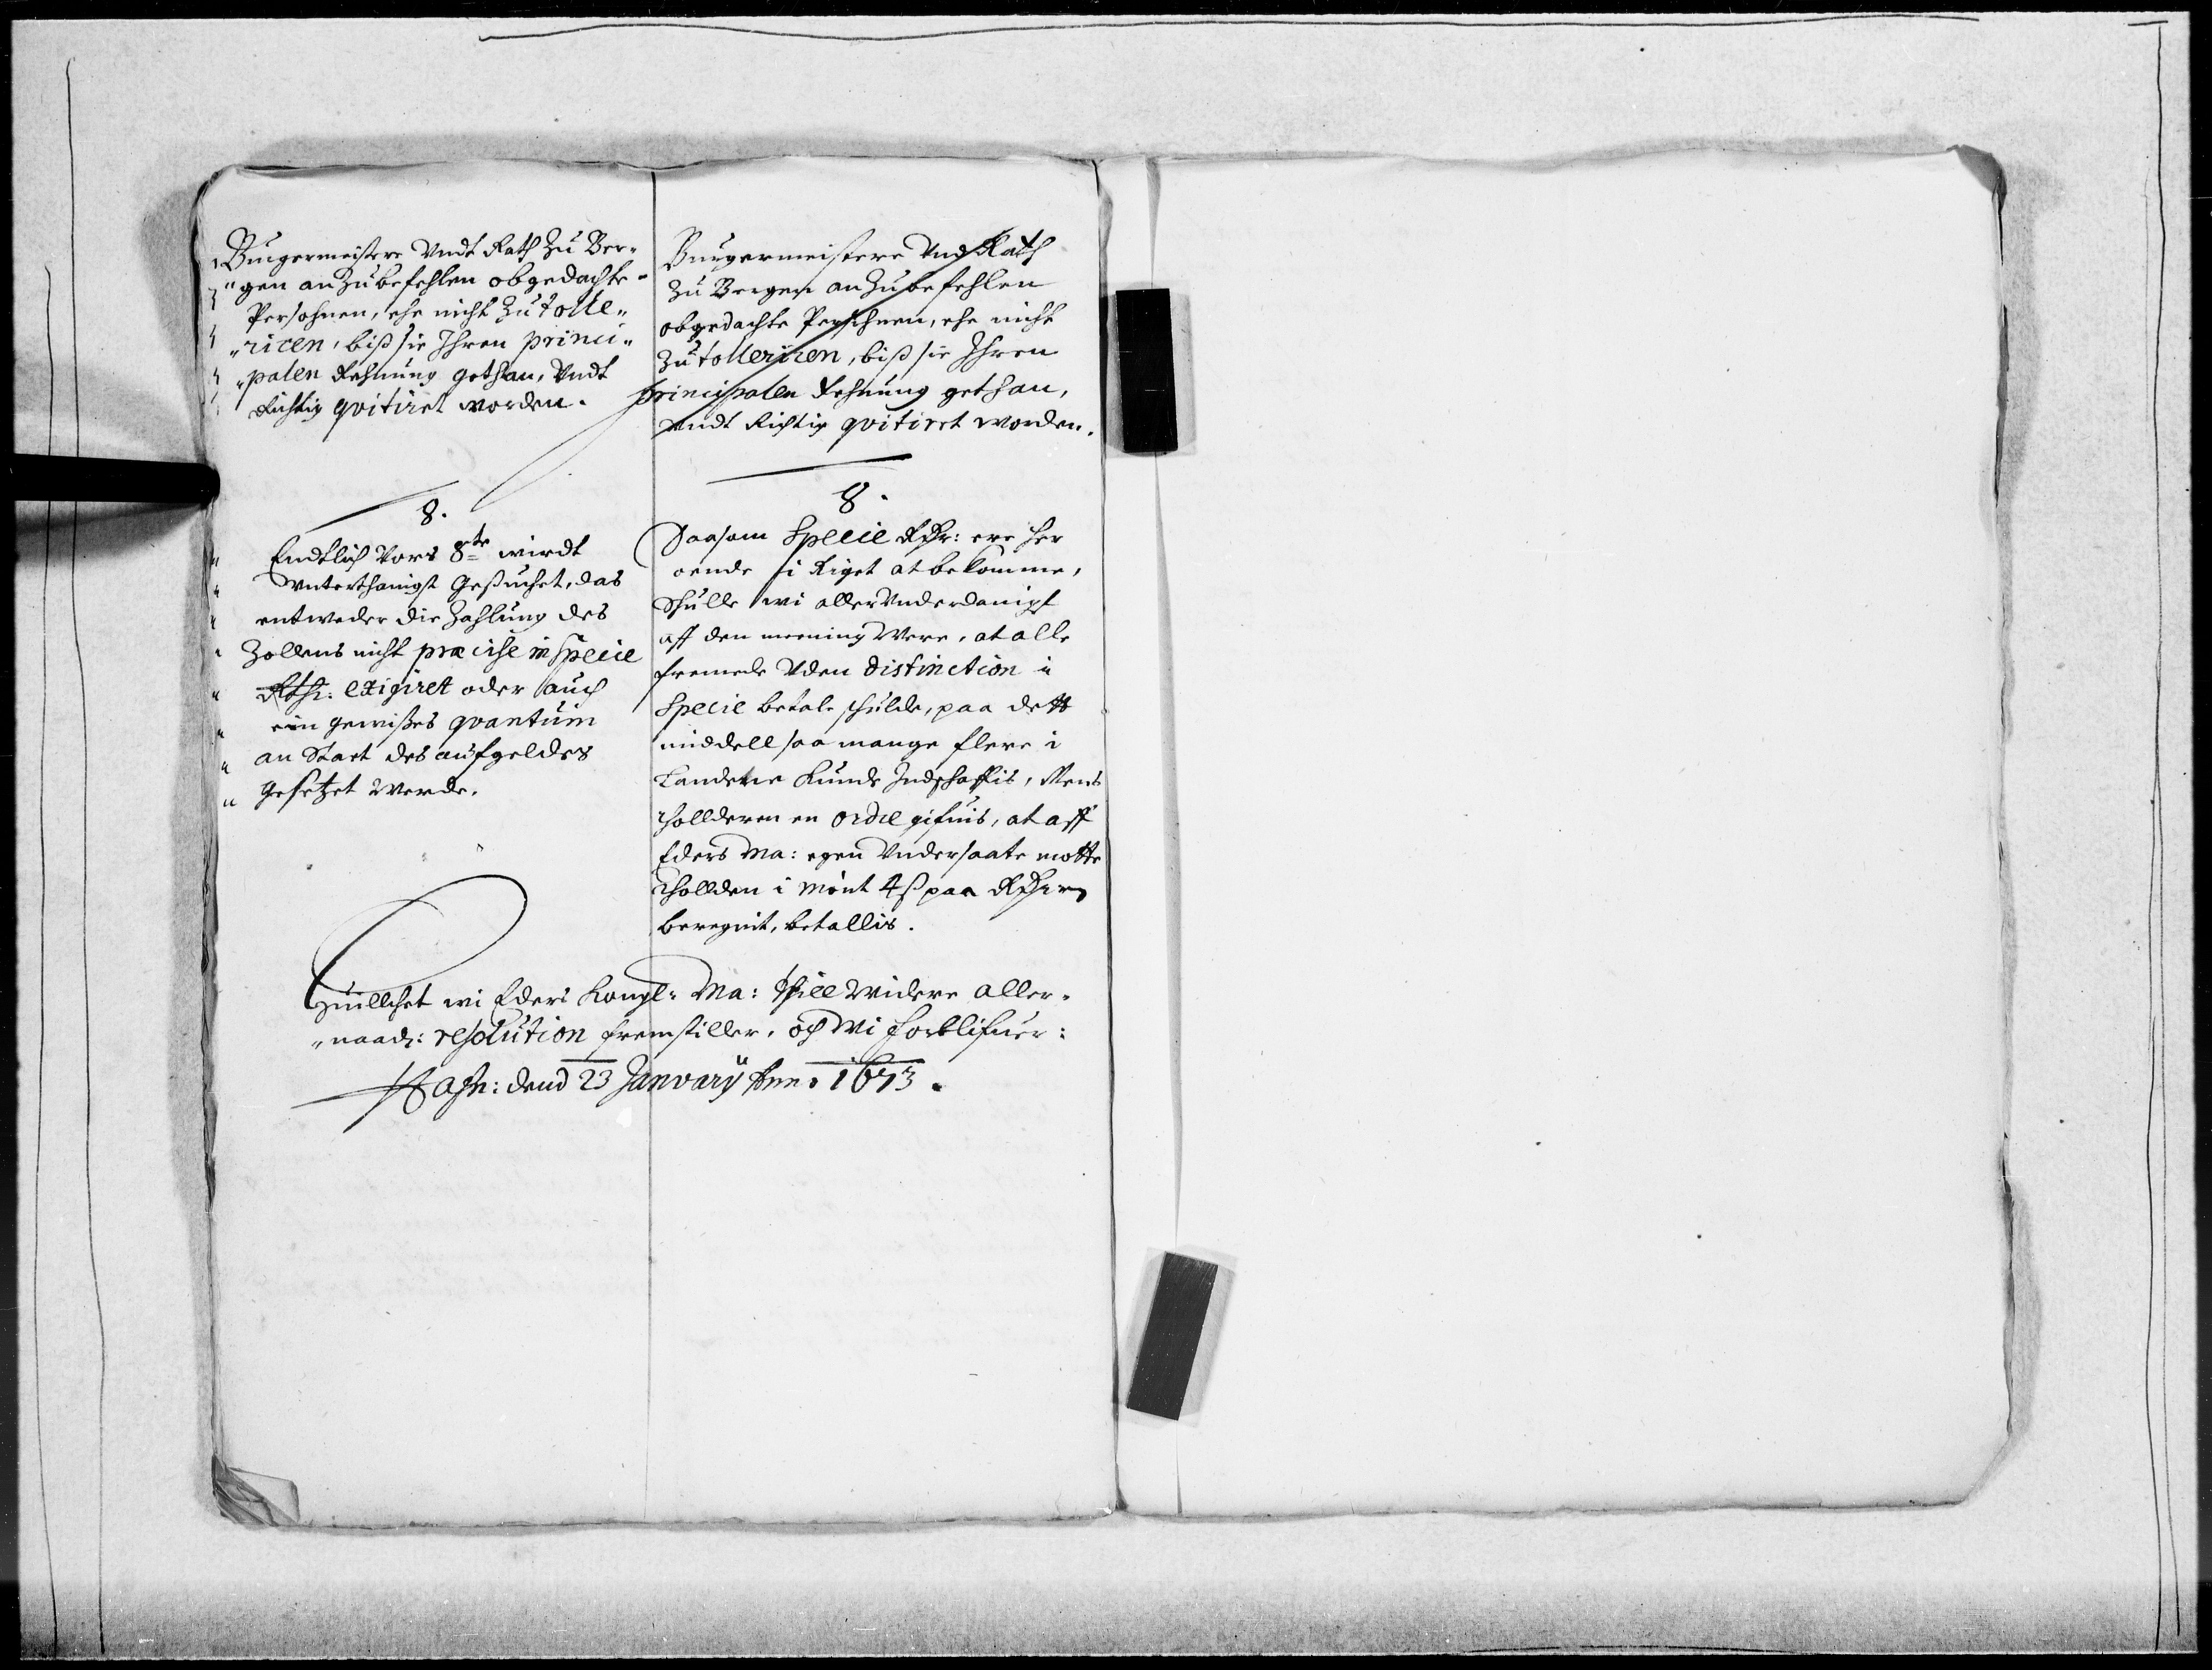 Burgermeistere Vndt Rath Zu Ber„
„gen anzubefehlen obgedachte
Persohnen, ehe nicht Zu tolle„
„riren, biß sie Ihren princi„
„palen Rechnung gethan, Vndt
Richtig qvitiret worden.
8.
Endtlich Vors 8te wirdt
Vnterthanigst Gesuchet, das
entweder die Zahlung des
Zollens nicht præcise in specie
Rthr: exigiret oder auch
ein gewißes qvantum
an Staet des aufgeldes
gesetzet Werde.
Burgermeistere Vnd Rath
Zu Bergen anzubefehlen
obgedachte Persohnen, ehe nicht
Zu tolleriren, biß sie Ihren
principalen Rechnung gethan,
Vndt Richtig qvitiret worden.
8.
Saasom Specie Rdr: ere her
oende i Riget at bekomme,
Schulle wi allerVnderdanigst
aff den meening Were, at alle
fremede Vden distinction i
Specie betale schulde, paa dett
middell saa mange flere i
Landene kunde Indschaffis, Mens
hollderen en ordre gifuis, at aff
Eders Ma: egen Vndersaate motte
thollden i mönt 4 ß paa Rdhrn
beregnit, betallis.
Huillchet wi Eders Kongl: Ma: till Widere aller„
„naadi: resolution fremstiller, och Wi forblifuer:
Hafn: dend 23 Janvarÿ Anno 1673.